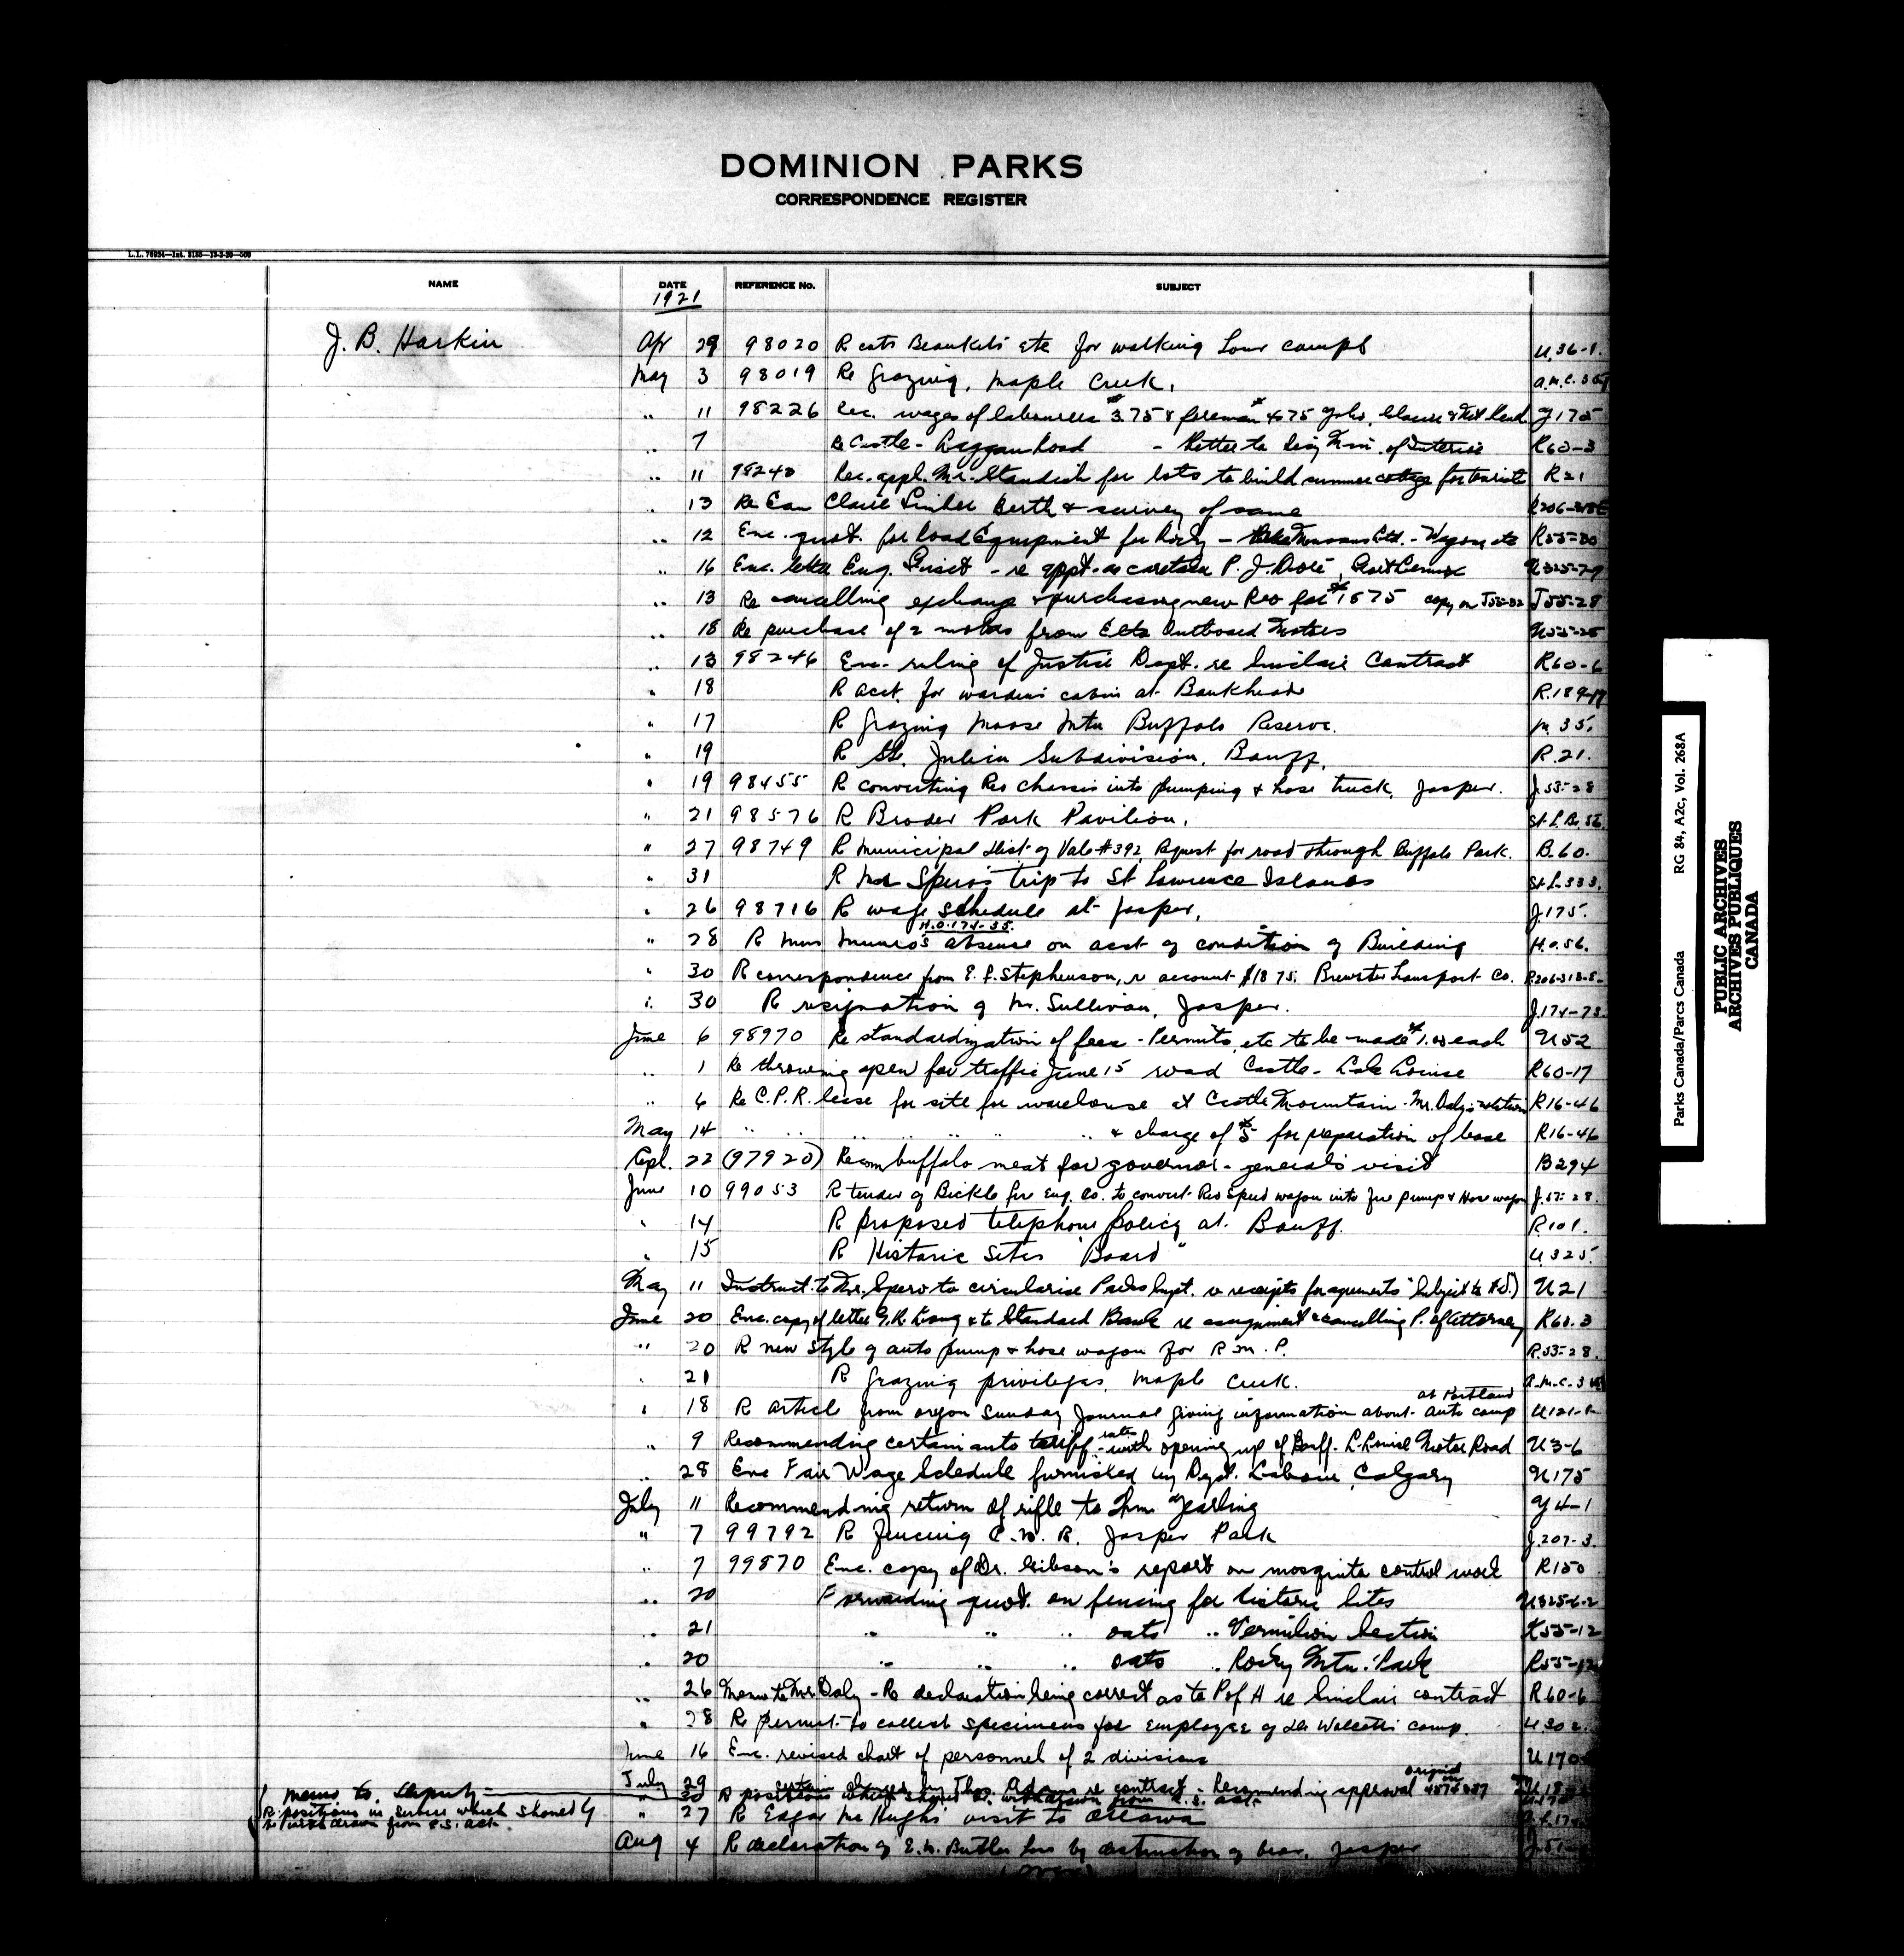 DOMINION PARKS
CORRESPONDENCE REGISTER
L.L. 76924—Int. 3155—13-3-20—500
NAME DATE REFERENCE No. SUBJECT
1921
J. B. Harkin Apr 29 98020 R cots Blankets etc for walking tour camps U.36-1.
May 3 98019 Re Grazing, Maple Creek.
.. 11 98226 Rec. wages of labourers $3.75 & foreman $4.75 Yoho, Glacier & Mt Revel Y175
.. 7 Re Castle - Laggan Road - Letter to Min. of Interior R60-3
.. 11 98240 Rec. appl. Mr. Standish for lots to build summer cottage for tourists R21
.. 13 Re Eau Claire Timber Berth & survey of same
.. 12 Enc. quot. for Road Equipment for Rocky - Wagons etc R55-30
.. 16 Enc. letter Eng. - re appt. as caretaker P. J.
.. 13 Re cancelling exchange & purchasing new Reo for $1875 copy on J55-32 J55-28
.. 18 Re purchase of 2 motors from Elto Outboard Motors U55-25
.. 13 98246 Enc. ruling of Justice Dept. re Sinclair Contract R60-6
" 18 R acct. for warden's cabin at Bankhead R.189-17
" 17 R Grazing Moose Mtn Buffalo Reserve. M.35.
" 19 R St. Julien Subdivision, Banff. R.21.
" 19 98455 R converting Reo chassis into pumping & hose truck, Jasper. J.55-28
" 21 98576 R Broder Park Pavilion. St.L.Br.56.
" 27 98749 R Municipal Dist. of Vale #392, Request for road through Buffalo Park. B.60.
" 31 R Mr Spero's trip to St Lawrence Islands St.L-333.
" 26 98716 R wage schedule at Jasper. J.175.
H.O.174-35.
" 28 R Miss Munro's absence on acct of condition of Building H.O.56.
" 30 R correspondence from E. F. Stephenson, re account $1875. Brewster Transport Co. R.206-318-S-
" 30 R resignation of Mr. Sullivan, Jasper. J.174-73.
June 6 98970 Re standardization of fees - Permits, etc to be made $1.00 each U52
.. 1 Re throwing open for traffic June 15 road Castle - Lake Louise R60-17
.. 6 Re C.P.R. lease for site for warehouse at Castle Mountain - Mr. Daly's R16-46
May 14 .. .. .. .. .. .. & charge of $5 for preparation of lease R16-46
Apl. 22 (97920) Recom buffalo meat for governor-general's visit B294
June 10 99053 R tender of Bickle Fire Eng. Co. to convert Reo Speed wagon into fire pump & Hose wagon J.55-28.
" 14 R proposed telephone policy at Banff. R.101.
" 15 R Historic Sites "Board" U.325.
May 11 Instruct. to Mr. Spero to circularise Parks Supt. re receipts for agreements U21
June 20 Enc. copy of letter G.R. & to Standard Bank re assignment & cancelling P. of Attorney R60.3
" 20 R new style of auto pump & hose wagon for R.M.P. R.55-28.
" 21 R grazing privileges, Maple Creek.
at Portland
" 18 R article from Oregon Sunday Journal giving information about auto camp
.. 9 Recommending certain auto tariff - with opening up of Banff - L. Louise Motor Road U3-6
.. 28 Enc Fair Wage Schedule furnished by Dept. Labour, Calgary U175
July 11 Recommending return of rifle to Y4-1
" 7 99792 R Fencing C.N.R. Jasper Park J.207-3.
.. 7 99870 Enc. copy of Dr. Gibson's report on mosquito control work R150
.. 20 Forwarding quot. on fencing for historic sites U325-6-2
.. 21 .. .. .. oats .. Vermilion Section K55-12
.. 20 .. .. .. oats .. Rocky Mtn. Park R55-12
.. 26 Memo to Mr. Daly - Re declaration being correct as to P of A re Sinclair contract R60-6
" 28 Re permit to collect specimens for employee of Dr Walcott's camp. U302.
June 16 Enc. revised chart of personnel of 2 divisions U170
July 29 certain by Thos. Adams re contract - Recommending approval
Memo to Deputy
" 30 R positions which should be withdrawn from C.S. act.
R positions in service which should be withdrawn from C.S. act.
" 27 R Edgar McHugh's visit to Ottawa
Aug 4 R declaration of E. N. Butler loss by destruction of bear, Jasper
(Over)
Parks Canada/Parcs Canada RG 84, A2c, Vol. 268A
PUBLIC ARCHIVES
ARCHIVES PUBLIQUES
CANADA